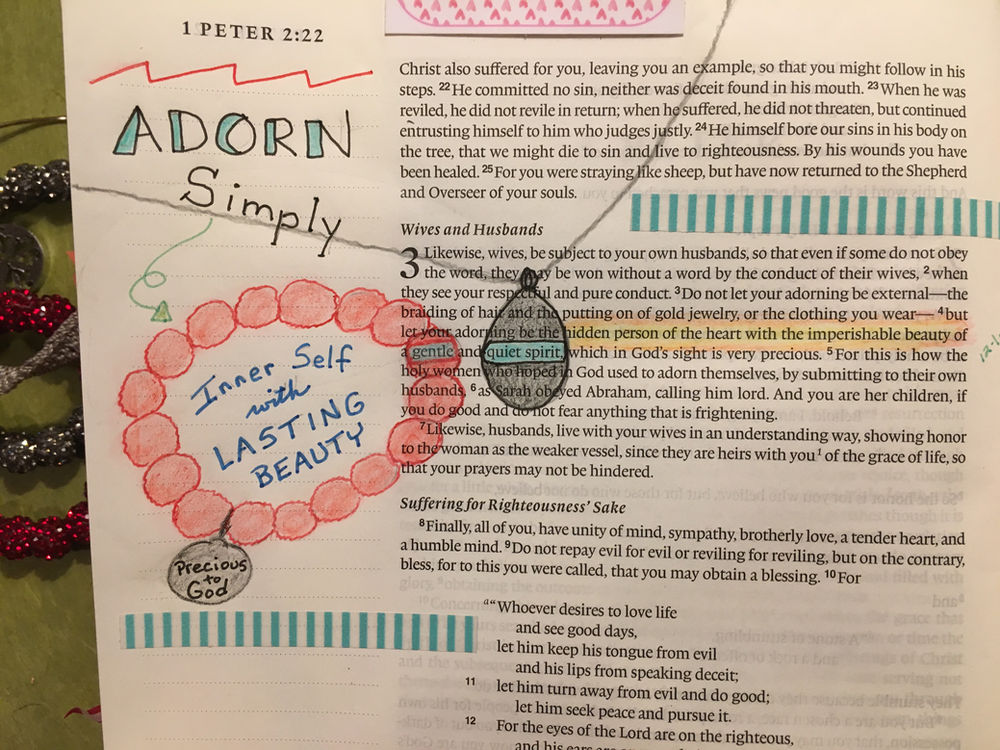 1 PETER 2:22
ADORN
Simply
Inner Self
with
LASTING
BEAUTY
Precious
to
God
Christ also suffered for you, leaving you an example, so that you might follow in his
steps. 22 He committed no sin, neither was deceit found in his mouth. 23 When he was
reviled, he did not revile in return; when he suffered, he did not threaten, but continued
entrusting himself to him who judges justly. 24 He himself bore our sins in his body on
the tree, that we might die to sin and live to righteousness. By his wounds you have
been healed. 25 For you were straying like sheep, but have now returned to the Shepherd
and Overseer of your souls.
Wives and Husbands
3 Likewise, wives, be subject to your own husbands, so that even if some do not obey
the word, they may be won without a word by the conduct of their wives, 2 when
they see your respectful and pure conduct. 3 Do not let your adorning be external—the
braiding of hair and the putting on of gold jewelry, or the clothing you wear— 4 but
let your adorning be the hidden person of the heart with the imperishable beauty of
a gentle and quiet spirit, which in God's sight is very precious. 5 For this is how the
holy women who hoped in God used to adorn themselves, by submitting to their own
husbands, 6 as Sarah obeyed Abraham, calling him lord. And you are her children, if
you do good and do not fear anything that is frightening.
7 Likewise, husbands, live with your wives in an understanding way, showing honor
to the woman as the weaker vessel, since they are heirs with you1 of the grace of life, so
that your prayers may not be hindered.
Suffering for Righteousness' Sake
8 Finally, all of you, have unity of mind, sympathy, brotherly love, a tender heart, and
a humble mind. 9 Do not repay evil for evil or reviling for reviling, but on the contrary,
bless, for to this you were called, that you may obtain a blessing. 10 For
a "Whoever desires to love life
and see good days,
let him keep his tongue from evil
and his lips from speaking deceit;
11 let him turn away from evil and do good;
let him seek peace and pursue it.
12 For the eyes of the Lord are on the righteous,
and his ears are